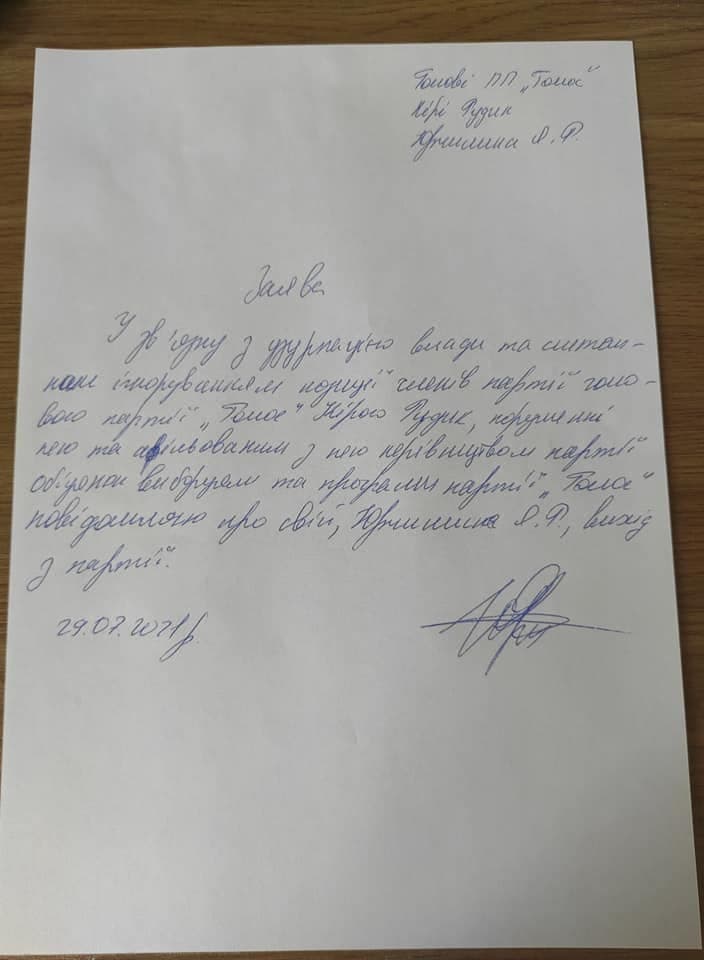 Голові ПП „Голос"
Кірі Рудик
Юрчишина Я.Р.
Заява
У зв'язку з узурпацією влади та система-
ним ігноруванням позиції членів партії голо-
вою партії „Голос" Кірою Рудик, порушенні
нею та афільованим з нею керівництвом партії
обіцянок виборцям та програми партії „Голос"
повідомляю про свій, Юрчишина Я.Р., вихід
з партії.
29.07.2021р.